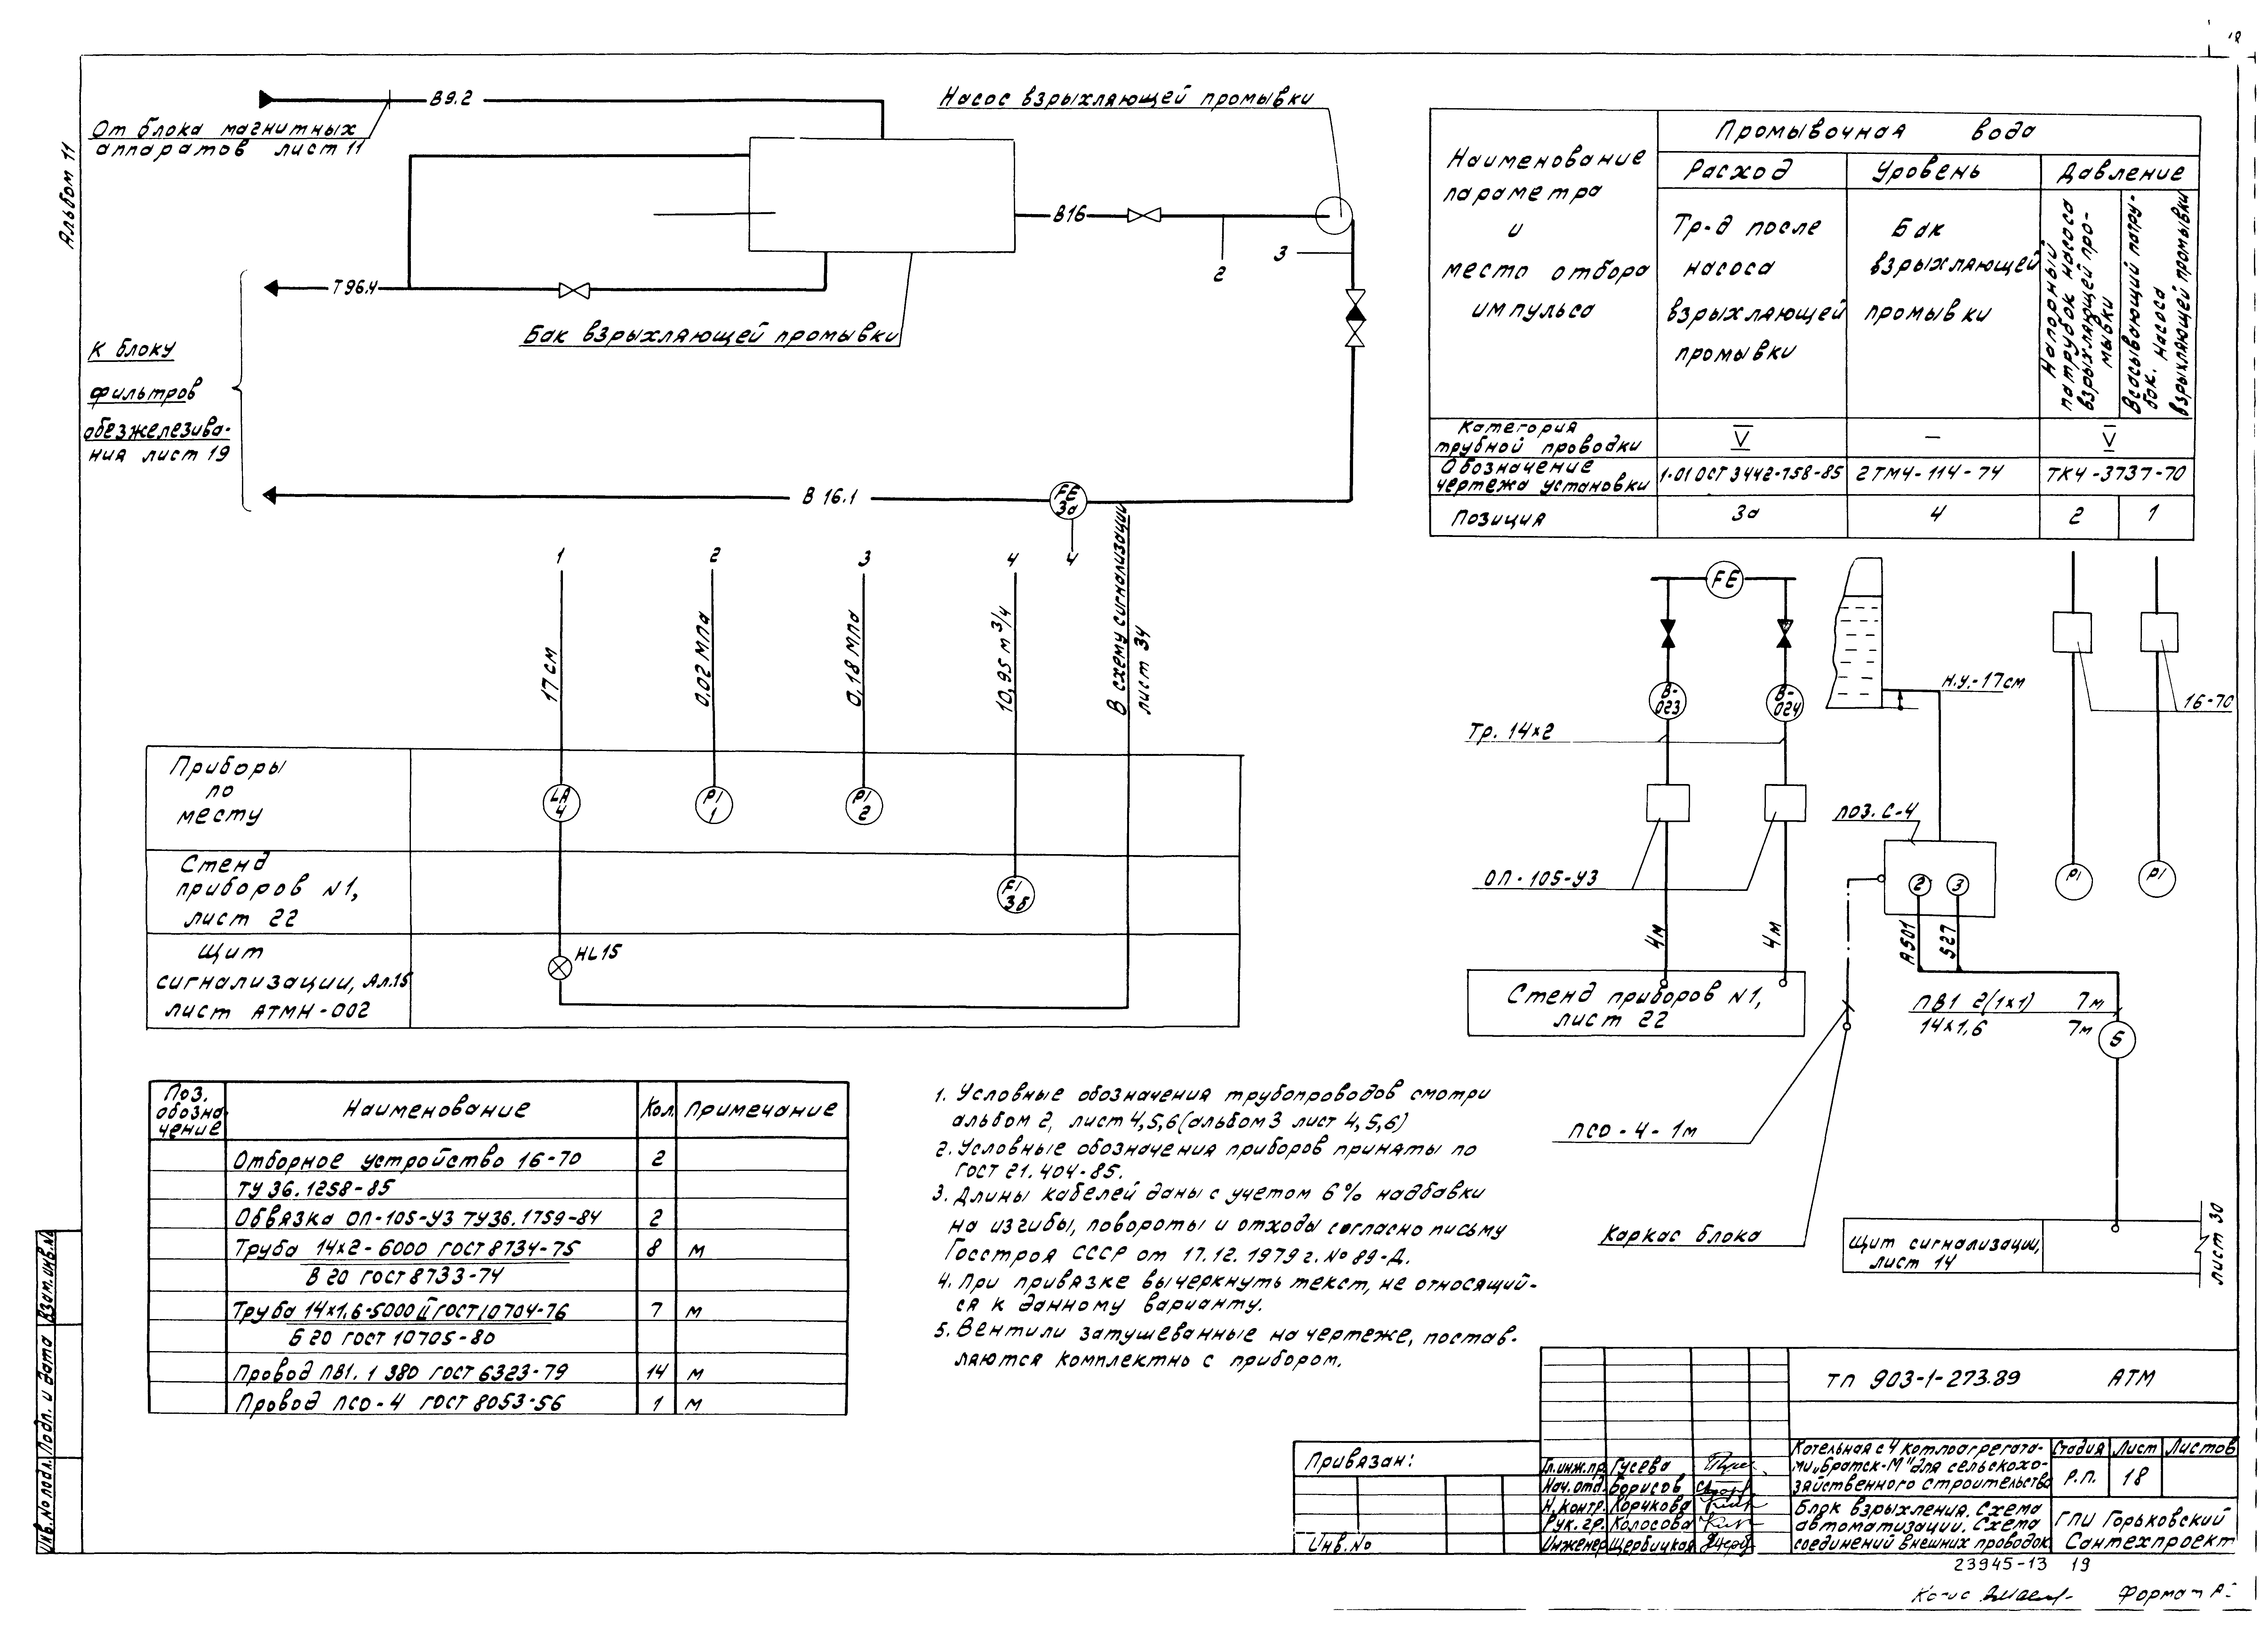 Альбом 11
От блока магнитных
аппаратов лист 11
В9.2
Насос взрыхляющей промывки
В16
2
3
Т96.4
Бак взрыхляющей промывки
К блоку
фильтров
обезжелезива-
ния лист 19
В 16.1
FE
3а
4
В схему сигнализации
лист 34
1
2
3
4
17 см
0.02 МПа
0,18 МПа
10,95 м³/ч
Приборы
по
месту
LA
4
PI
1
PI
2
Стенд
приборов №1,
лист 22
FI
3б
Щит
сигнализации, Ал.15
лист АТМН-002
HL15
Наименование
параметра
и
место отбора
импульса
Промывочная вода
Расход
Уровень
Давление
Тр-д после
насоса
взрыхляющей
промывки
Бак
взрыхляющей
промывки
Напорный
патрубок насоса
взрыхляющей про-
мывки
Всасывающий патру-
бок. насоса
взрыхляющей промывки
Категория
трубной проводки
V
—
V
Обозначение
чертежа установки
1-01 ОСТ 3442-758-85
2ТМ4-114-74
ТК4-3737-70
Позиция
3а
4
2
1
FE
В-
023
В-
024
Тр. 14×2
ОП-105-УЗ
4м
4м
Стенд приборов №1,
лист 22
Н.У.-17см
16-70
поз. С-4
2
3
PI
PI
А501
527
ПВ1 2(1×1) 7м
14×1,6 7м
5
ПСО-4-1м
Каркас блока
Щит сигнализации,
лист 14
лист 30
Поз.
обозна-
чение
Наименование
Кол.
Примечание
Отборное устройство 16-70 2
ТУ 36.1258-85
Обвязка ОП-105-УЗ ТУ36.1759-84 2
Труба 14×2-6000 ГОСТ 8734-75 8 м
В 20 ГОСТ 8733-74
Труба 14×1,6-5000 II ГОСТ 10704-76 7 м
Б 20 ГОСТ 10705-80
Провод ПВ1. 1 380 ГОСТ 6323-79 14 м
Провод ПСО-4 ГОСТ 8053-56 1 м
1. Условные обозначения трубопроводов смотри
альбом 2, лист 4,5,6 (альбом 3 лист 4,5,6)
2. Условные обозначения приборов приняты по
ГОСТ 21.404-85.
3. Длины кабелей даны с учетом 6% надбавки
на изгибы, повороты и отходы согласно письму
Госстроя СССР от 17.12.1979 г. № 89-Д.
4. При привязке вычеркнуть текст, не относящий-
ся к данному варианту.
5. Вентили затушеванные на чертеже, постав-
ляются комплектно с прибором.
Привязан:
Инв.№
ТП 903-1-273.89 АТМ
Гл.инж.пр. Гусева
Нач.отд. Борисов
Н.контр. Корчкова
Рук.гр. Колосова
Инженер Щербицкая
Котельная с 4 котлоагрегата-
ми „Братск-М" для сельскохо-
зяйственного строительства
Стадия
Лист
Листов
Р.П.
18
Блок взрыхления. Схема
автоматизации. Схема
соединений внешних проводок
ГПИ Горьковский
Сантехпроект
23945-13 19
Формат А
Инв.№ подл.
Подп. и дата
Взам.инв.№